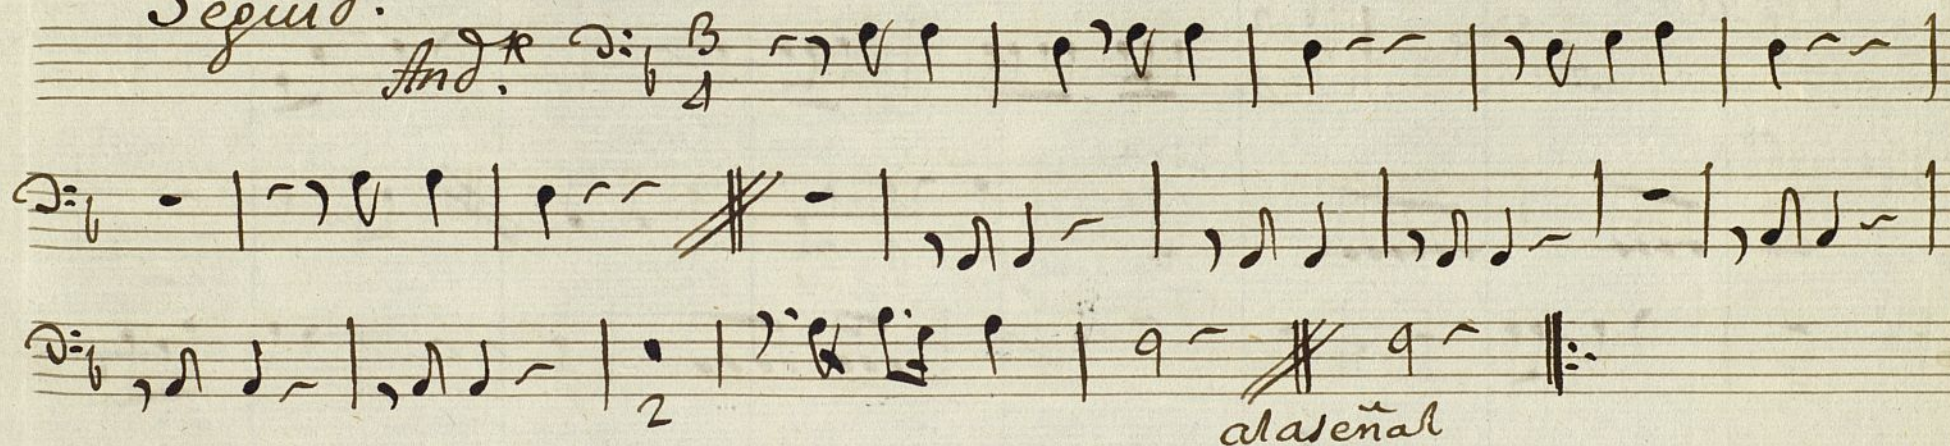 Seguid.
And.te 3 4
2
alaseñal